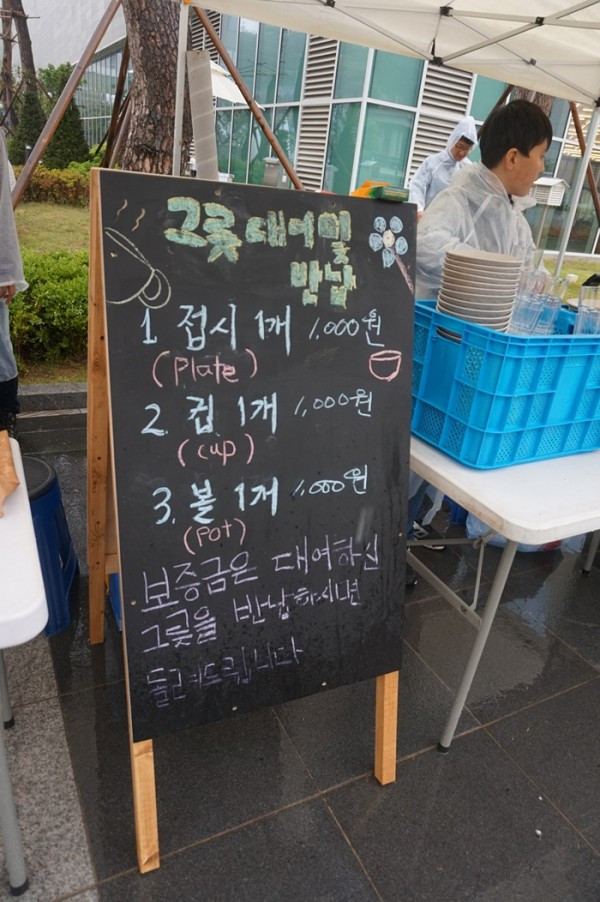 그릇 대여 및
반납
1. 접시 1개 1,000원
(Plate)
2. 컵 1개 1,000원
(cup)
3. 볼 1개 1,000원
(Pot)
보증금은 대여하신
그릇을 반납하시면
돌려드립니다